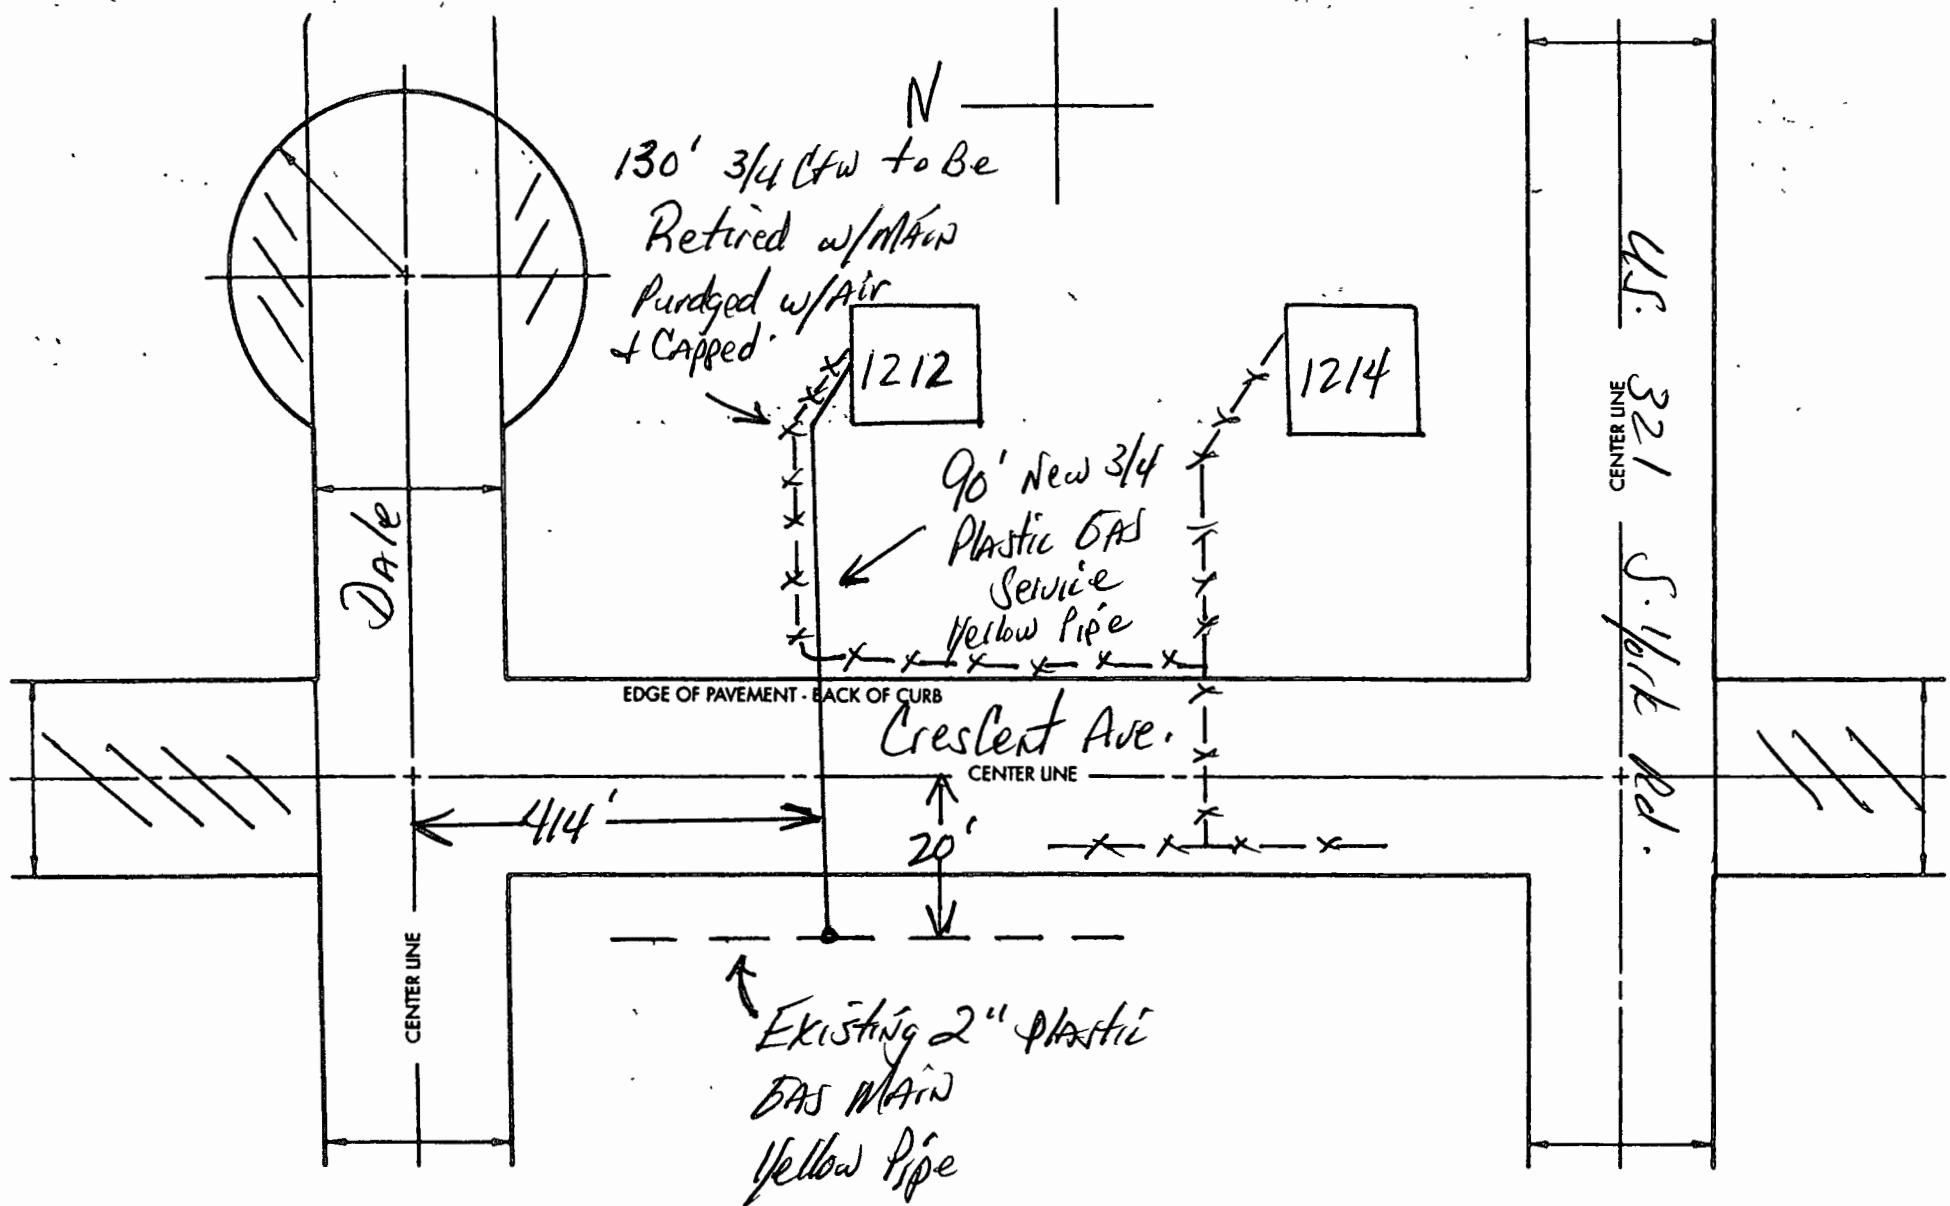 N
130' 3/4 Ctw to Be
Retired w/MAiN
Purdged w/Air
+ CAPPed.
1212
1214
90' New 3/4
PlAstic GAS
Service
Yellow Pipe
U.S. 321 S. York Rd.
CENTER LINE
DAle
EDGE OF PAVEMENT - BACK OF CURB
CresCent Ave.
CENTER LINE
414'
20'
CENTER LINE
Existing 2" PlAstic
GAS MAiN
Yellow Pipe